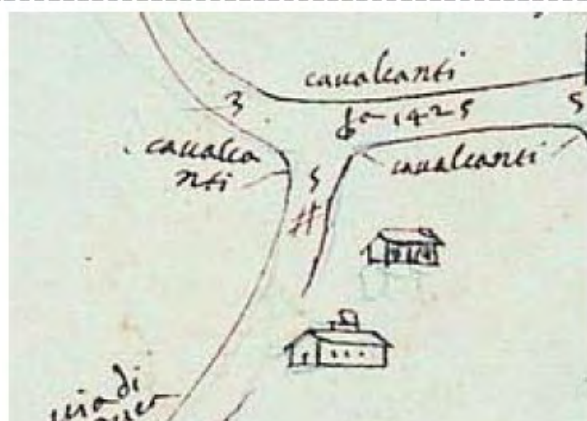 caualcanti
3
5
1425
caualca
nti
caualcanti
5
uia di